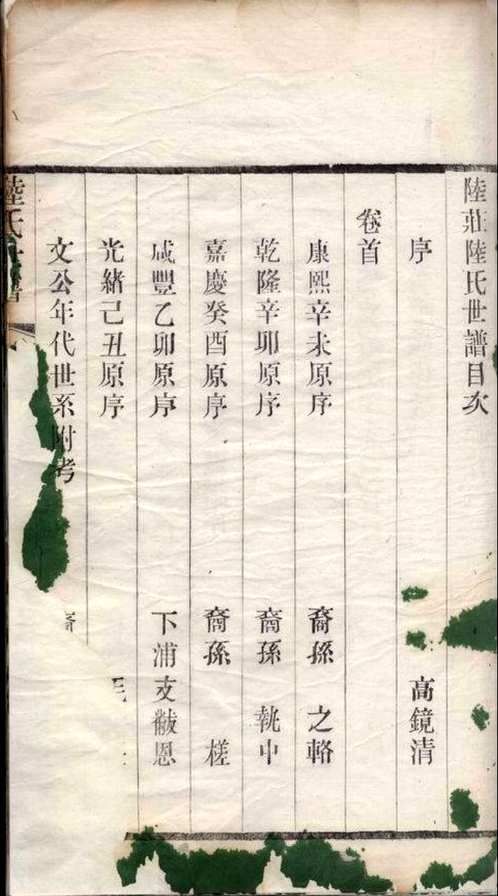 陸莊陸氏世譜目次
序 高鏡清
卷首
康熙辛未原序 裔孫 之輅
乾隆辛卯原序 裔孫 執中
嘉慶癸酉原序 裔孫 槎
咸豐乙卯原序 下浦支黻恩
光緒己丑原序
文公年代世系附考 裔
陸氏世譜